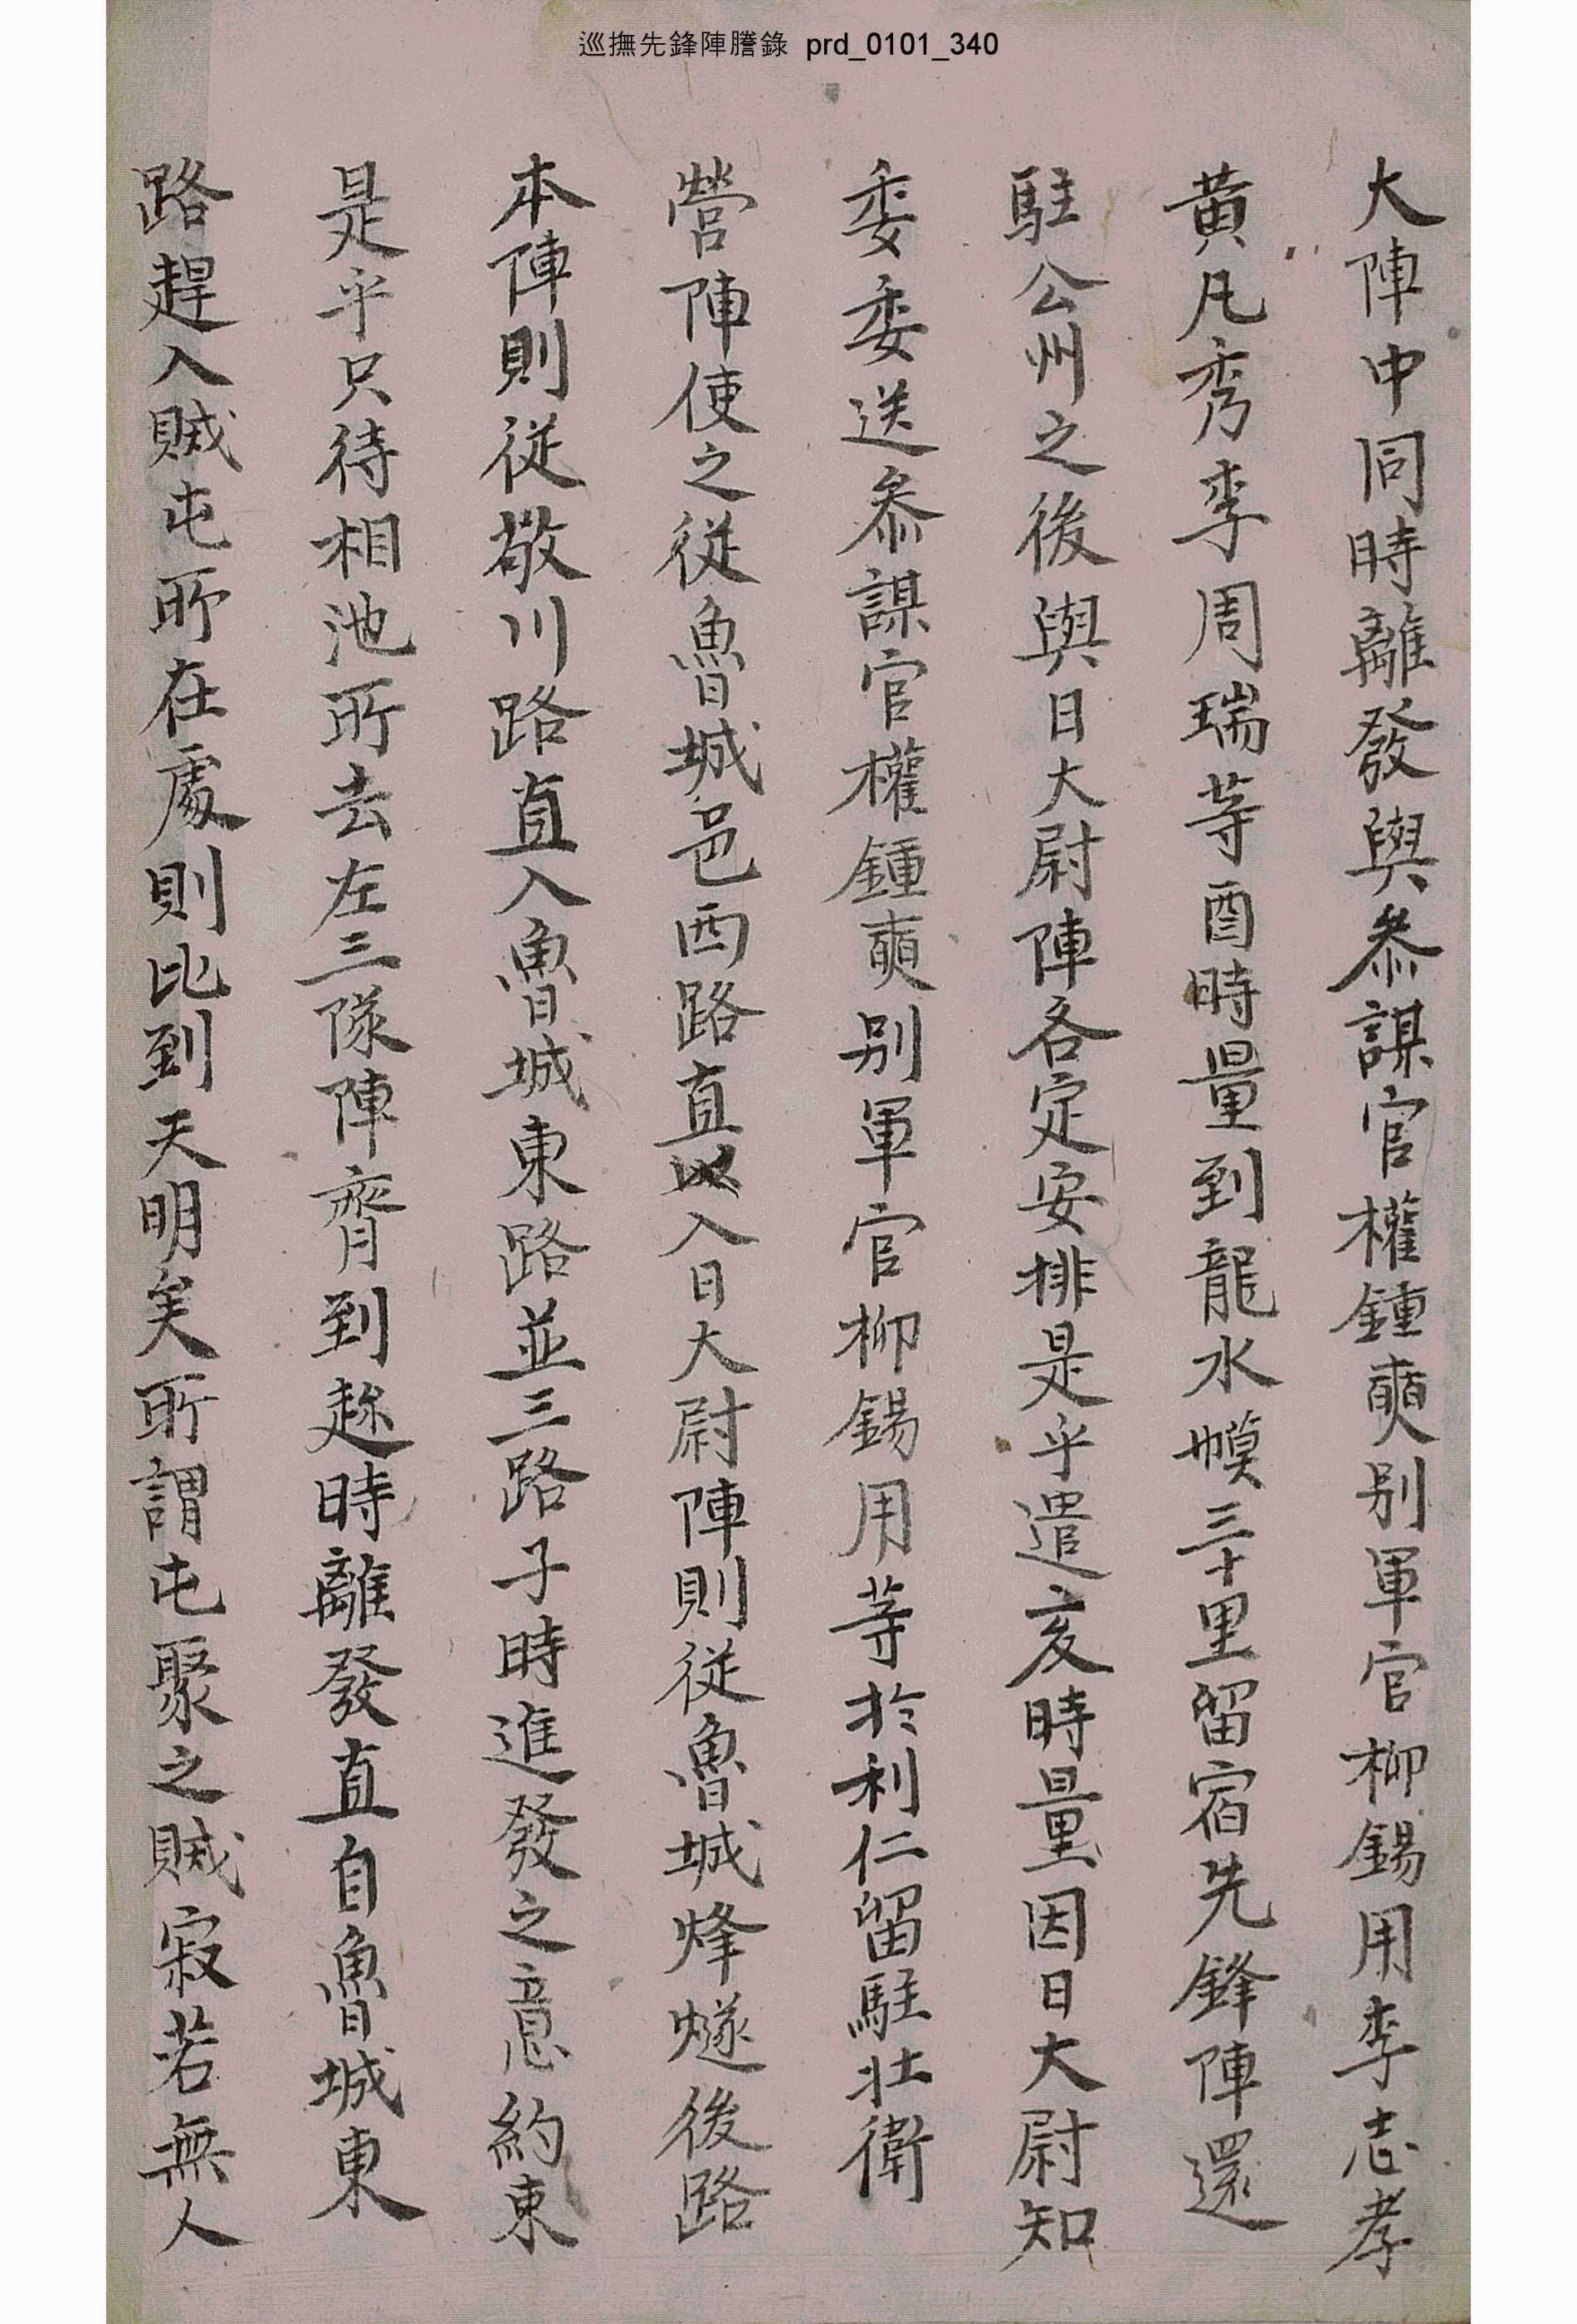 巡撫先鋒陣謄錄 prd_0101_340
大陣中同時離發與叅謀官權鍾奭別軍官柳錫用李志孝
黃凡秀李周瑞等酉時量到龍水幙三十里留宿先鋒陣還
駐公州之後與日大尉陣各定安排是乎遣亥時量因日大尉知
委委送叅謀官權鍾奭別軍官柳錫用等於利仁留駐壯衛
營陣使之從魯城邑西路直入日大尉陣則從魯城烽燧後路
本陣則從敬川路直入魯城東路並三路子時進發之意約束
是乎只待相池所去左三隊陣齊到趂時離發直自魯城東
路趕入賊屯所在處則比到天明矣所謂屯聚之賊寂若無人